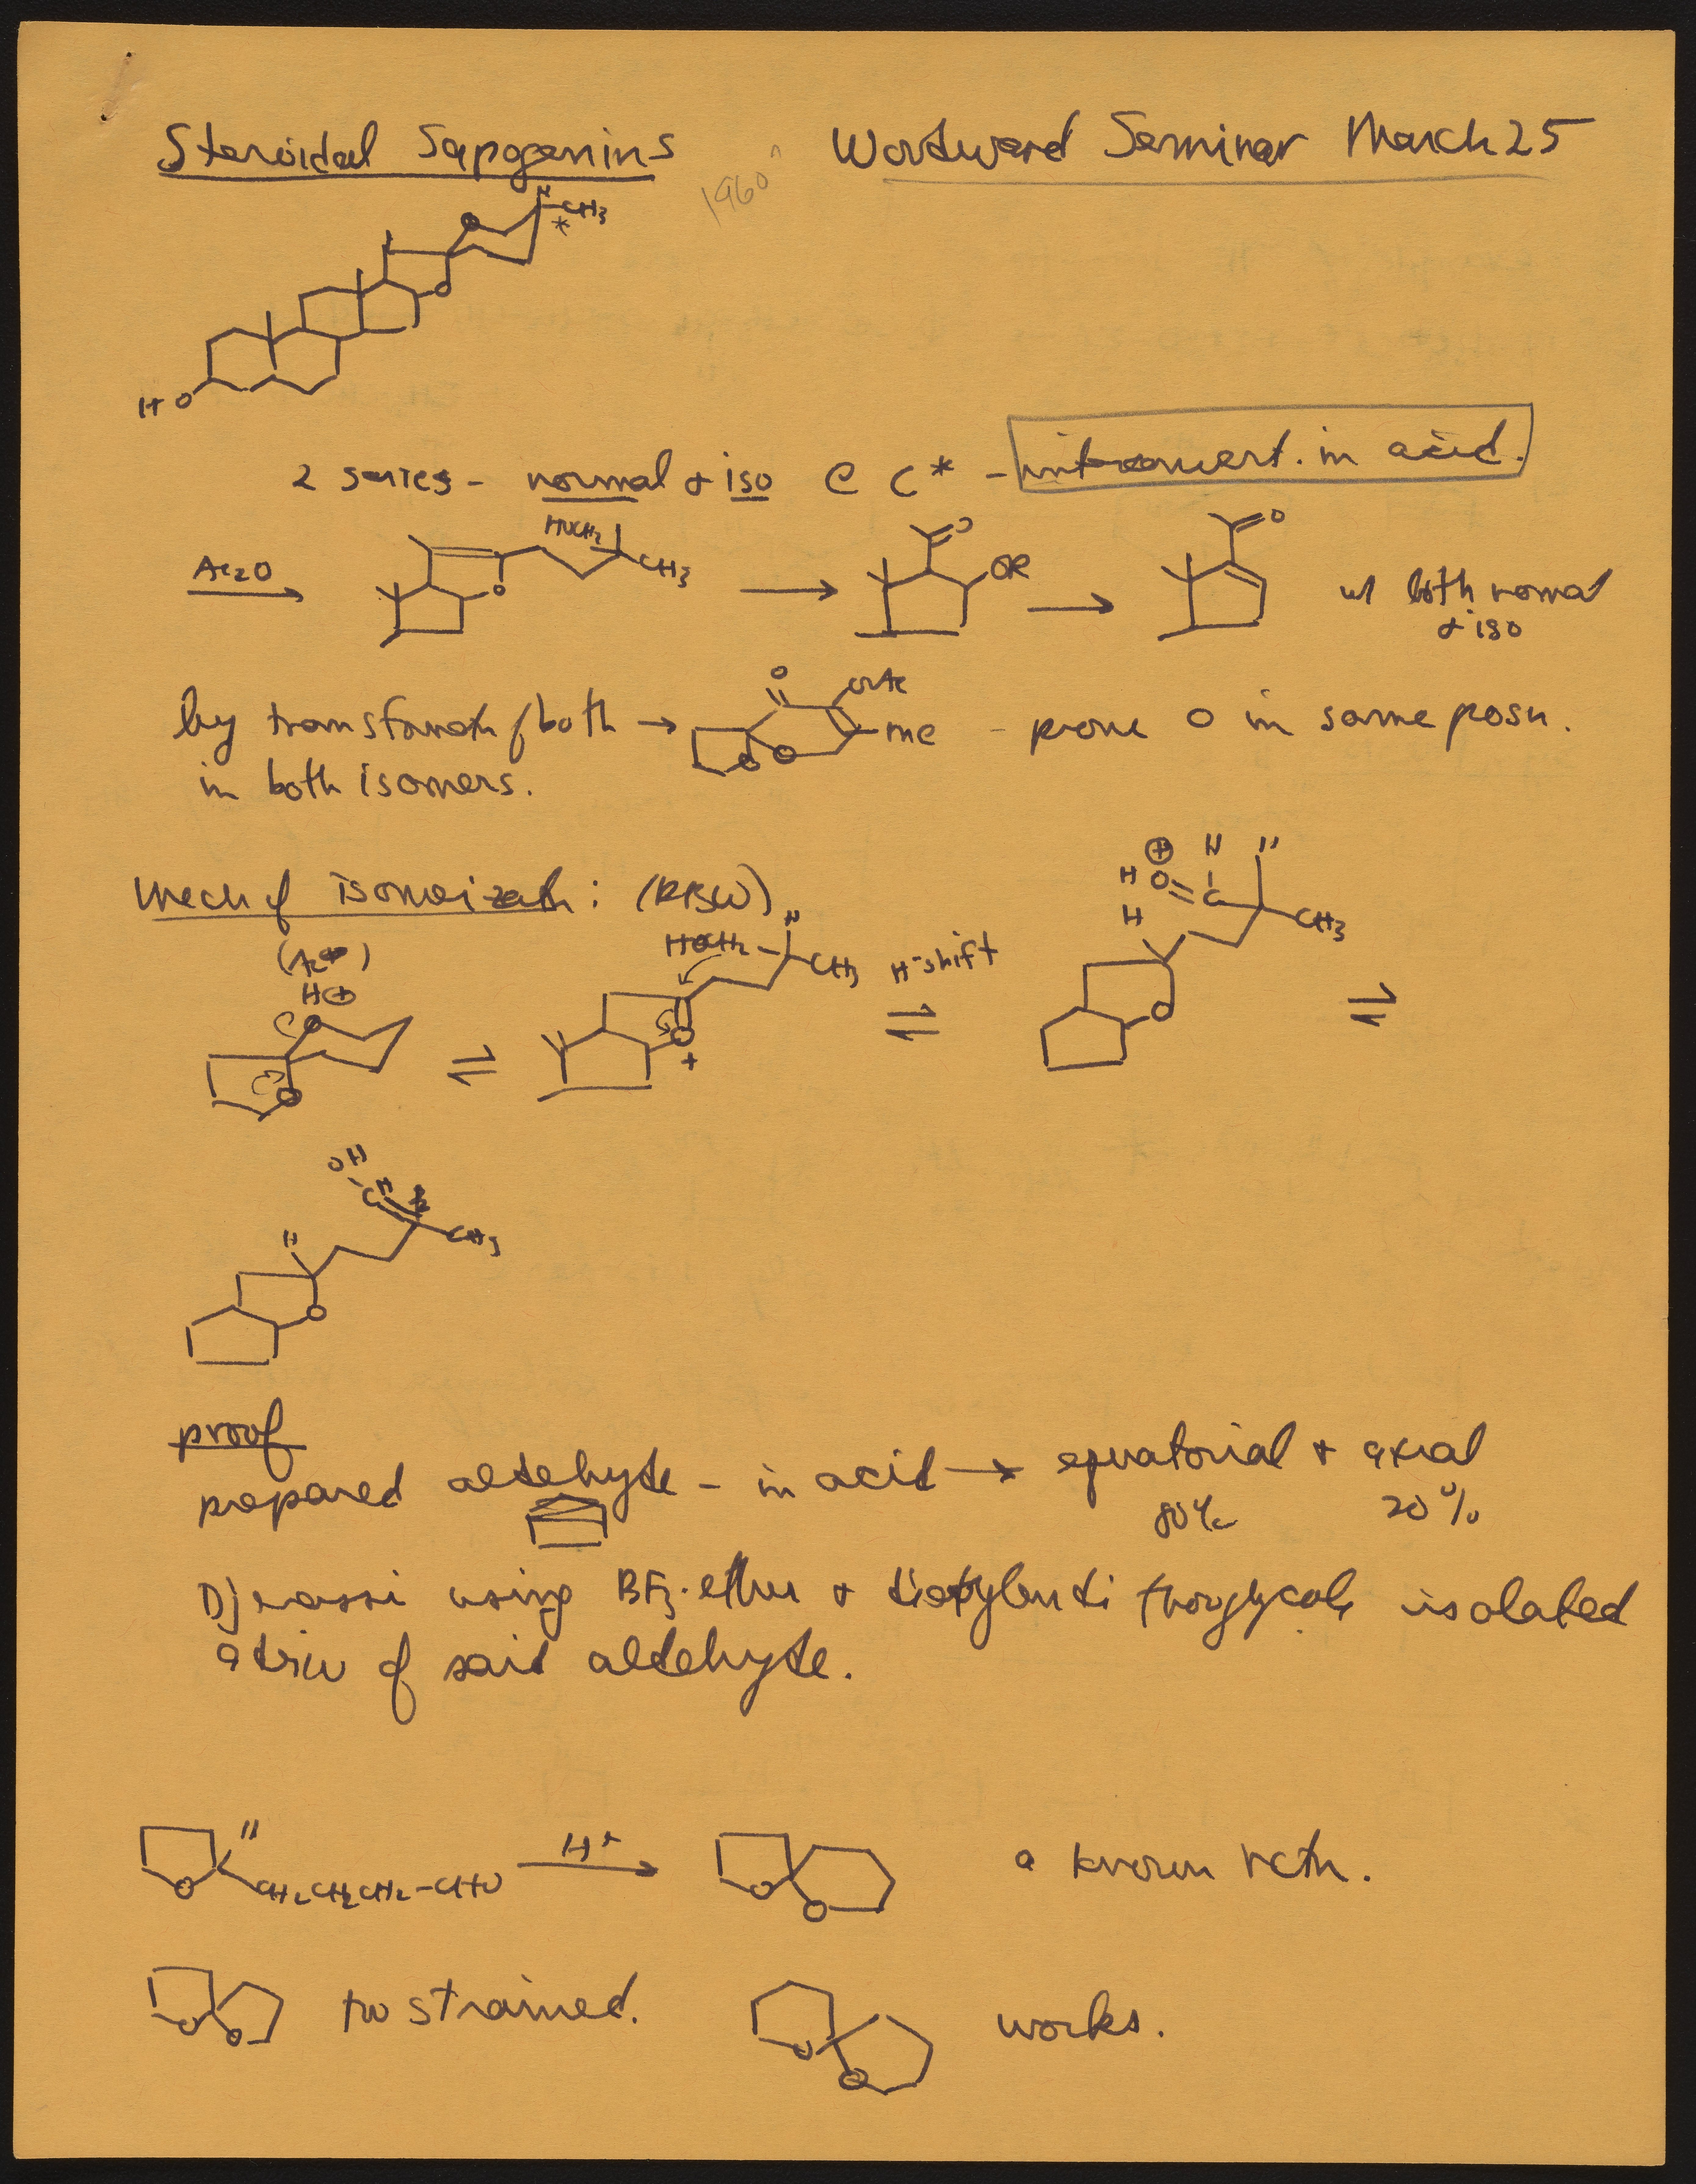 Steroidal Sapogenins Woodward Seminar March 25
1960
H
CH3
*
O
O
HO
2 series - normal & iso @ C* - interconvert. in acid.
HOCH2
CH3
O
O
OR
O
Ac2O
w/ both normal
& iso
by transformatn of both → - prove O in same posn.
O
OAc
Me
O
O
in both isomers.
Mech of isomerizatn: (RBW)
(Ac⊕)
H⊕
O
O
HOCH2
H
CH3
O
+
H⁻shift
⊕
H
H
HO=C
CH3
H
O
OH
CH
CH3
H
O
proof
prepared aldehyde - in acid → equatorial & axial
80% 20%
Djerassi using BF3·ether & isolated
a deriv of said aldehyde.
H
O
CH2CH2CH2-CHO
H+
O
O
a known rctn.
O
O
too strained.
O
O
works.